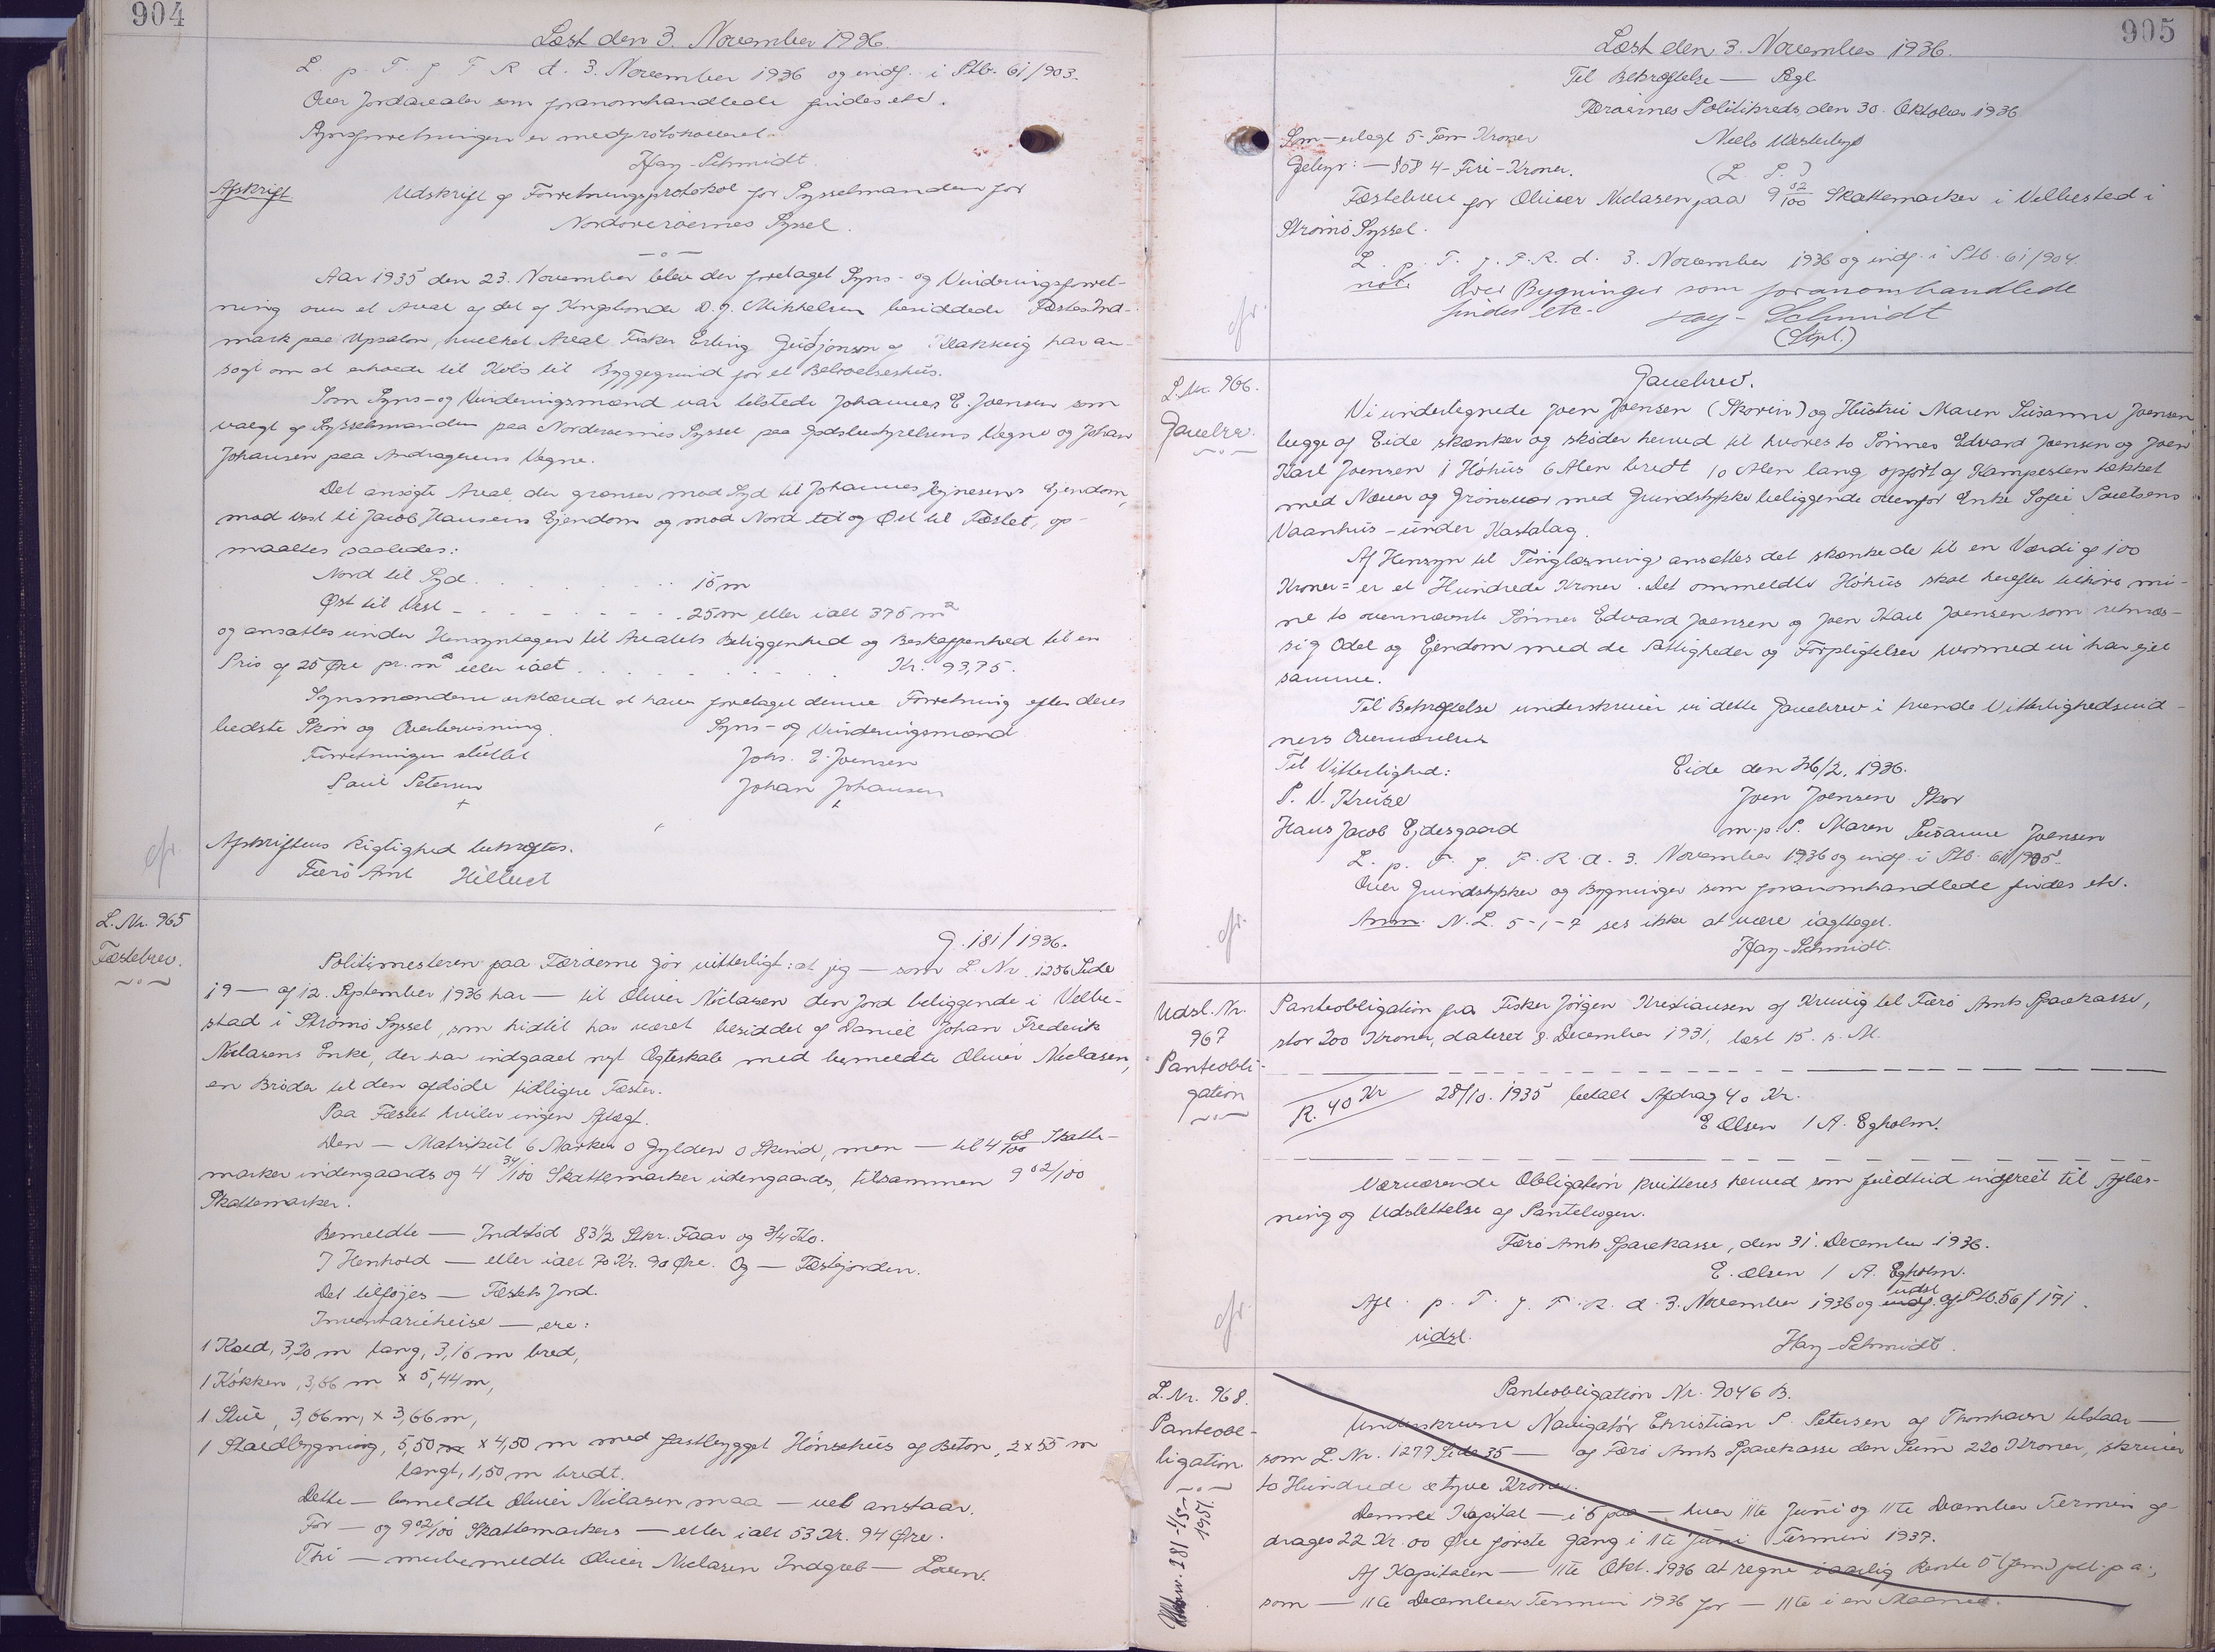 904
Læst den 3. November 1936.
L. p. T. f. F. R. d. 3. November 1936 og indf. i Ptb. 61/903.
Over Jordarealer som foranomhandlede findes etc.
Synsforretningen er medprotokolleret
Hay-Schmidt.
Afskrift Udskrift af Forretningsprotokol for Sysselmanden for
Norderøernes Syssel.
Aar 1935 den 23. November blev der foretaget Syns- og Vurderingsforret-
ning over et Areal af det af Kongsbonde D. J. Mikkelsen besiddede Fæstes Ind-
mark paa Upsalon, hvilket Areal Fisker Erling Gudjonson af Klaksvig har an-
søgt om at erhverve til Købs til Byggegrund for et Beboelseshus.
Som Syns- og Vurderingsmænd var tilstede Johannes E. Joensen som
valgt af Sysselmanden paa Norderøernes Syssel paa Godsbestyrelsens Vegne og Johan
Johansen paa Andragerens Vegne.
Det ansøgte Areal der grænser mod Syd til Johannes Højnesens Ejendom,
mod Vest til Jacob Hansens Ejendom og mod Nord til og Øst til Fæstet, op-
maaltes saaledes:
Nord til Syd 15 m
Øst til Vest 25 m eller ialt 375 m²
og ansattes under Hensyntagen til Arealets Beliggenhed og Beskaffenhed til en
Pris af 25 Øre pr. m² eller ialt Kr. 93,75.
Synsmændene erklærede at have foretaget denne Forretning efter deres
bedste Skøn og Overbevisning. Syns- og Vurderingsmænd
Forretningen sluttet Johs. E. Joensen
Poul Petersen Johan Johansen
Afskriftens Rigtighed bekræftes.
Færø Amt Hilbert
cfr.
L. Nr. 965
Fæstebrev.
J. 181/1936.
Politimesteren paa Færøerne gør vitterligt: at jeg — som L. Nr. 1256 Side
19 — af 12. September 1936 har — til Oliver Niclasen den Jord beliggende i Velbe-
stad i Strømø Syssel, som hidtil har været besiddet af Daniel Johan Frederik
Niclasens Enke, der har indgaaet nyt Ægteskab med bemeldte Oliver Niclasen,
en Broder til den afdøde tidligere Fæster.
Paa Fæstet hviler ingen Aftægt.
Den — Matrikul 6 Marker 0 Gylden 0 Skind, men — til 4 68/100 Skatte-
marker indengaards og 4 34/100 Skattemarker udengaards, tilsammen 9 02/100
Skattemarker.
Bemeldte — Indstød 83 1/2 Stkr. Faar og 3/4 Ko.
I Henhold — eller ialt 70 Kr. 90 Øre. Og — Fæstejorden.
Det tilføjes — Fæstets Jord.
Inventariehuse — ere:
1 Kold, 3,20 m lang, 3,16 m bred,
1 Køkken, 3,66 m x 5,44 m,
1 Stue, 3,66 m, x 3,66 m,
1 Staldbygning, 5,50 m x 4,50 m med fastbygget Hønsehus af Beton, 2 x 55 m
langt, 1,50 m bredt.
Dette — bemeldte Oliver Niclasen maa — vel anstaar.
For — og 9 02/100 Skattemarkers — eller ialt 53 Kr. 94 Øre.
Thi — merbemeldte Oliver Niclasen Indgreb — Loven.
905
Læst den 3. November 1936.
Til Bekræftelse — Segl
Færøernes Politikreds, den 30. Oktober 1936
Som — erlagt 5 - Fem Kroner Niels Westerby
Gebyr: — § 58 4 - Fire - Kroner. (L. S.)
Fæstebrev for Oliver Niclasen paa 9 02/100 Skattemarker i Velbested i
Strømø Syssel.
L. p. T. f. F. R. d. 3. November 1936 og indf. i Ptb. 61/904.
note Over Bygninger som foranomhandlede
findes etc. Hay-Schmidt
(Stpl.)
cfr.
L. Nr. 966.
Gavebrev.
Gavebrev.
Vi undertegnede Joen Joensen (Skorin) og Hustru Maren Susanne Joensen
begge af Eide skænker og skøder herved til hvores to Sønner Edvard Joensen og Joen
Karl Joensen 1 Høhus 6 Alen bredt 10 Alen lang opført af Kampesten tækket
med Næver og Grønsvær med Grundstykke beliggende ovenfor Enke Sofie Poulsens
Vaanhus - under Kastalag.
Af Hensyn til Tinglæsning ansættes det skænkede til en Værdi af 100
Kroner = er et Hundrede Kroner. Det ommeldte Høhus skal herefter tilhøre mi-
ne to ovennævnte Sønner Edvard Joensen og Joen Karl Joensen som retmæs-
sig Odel og Ejendom med de Rettigheder og Forpligtelser hvormed vi har ejet
samme.
Til Bekræftelse underskriver vi dette Gavebrev i tvende Vitterlighedsvid-
ners Overværelse
Til Vitterlighed: Eide den 26/2. 1936.
P. V. Kruse Joen Joensen Skor
Hans Jacob Ejdesgaard m. p. P. Maren Susanne Joensen
L. p. T. f. F. R. d. 3. November 1936 og indf. i Ptb. 61/905.
Over Grundstykker og Bygninger som foranomhandlede findes etc.
Anm. N. L. 5-1-7 ses ikke at være iagttaget.
Hay-Schmidt.
cfr.
Udsl. Nr.
967
Panteobli-
gation
Panteobligation fra Fisker Jørgen Kristiansen af Kvivig til Færø Amts Sparekasse,
stor 200 Kroner, dateret 8. December 1931, læst 15. s. M.
R. 40 Kr 28/10. 1935 betalt Afdrag 40 Kr.
E Olsen / A. Egholm.
Nærværende Obligation kvitteres herved som fuldtud indfriet til Aflæs-
ning og Udslettelse af Pantebogen.
Færø Amts Sparekasse, den 31. December 1936.
E. Olsen / A. Egholm.
Afl. p. T. f. F. R. d. 3. November 1936 og indf. udsl. af Ptb. 56/171.
udsl. Hay-Schmidt.
cfr.
L. Nr. 968.
Panteob-
ligation
1951.
Panteobligation Nr. 9046 B.
Underskrevne Navigatør Christian P. Petersen af Thorshavn tilstaar —
som L. Nr. 1277 Side 35 — af Færø Amts Sparekasse den Sum 220 Kroner, skriver
to Hundrede og tyve Kroner.
Denne Kapital — i 5 paa — hver 11te Juni og 11te December Termin af-
drages 22 Kr. 00 Øre første Gang i 11te Juni Termin 1937.
Af Kapitalen — 11te Okt. 1936 at regne i aarlig Rente 5 (fem) pCt. p. a.,
som — 11te December Termin 1936 for — 11te i en Maaned.